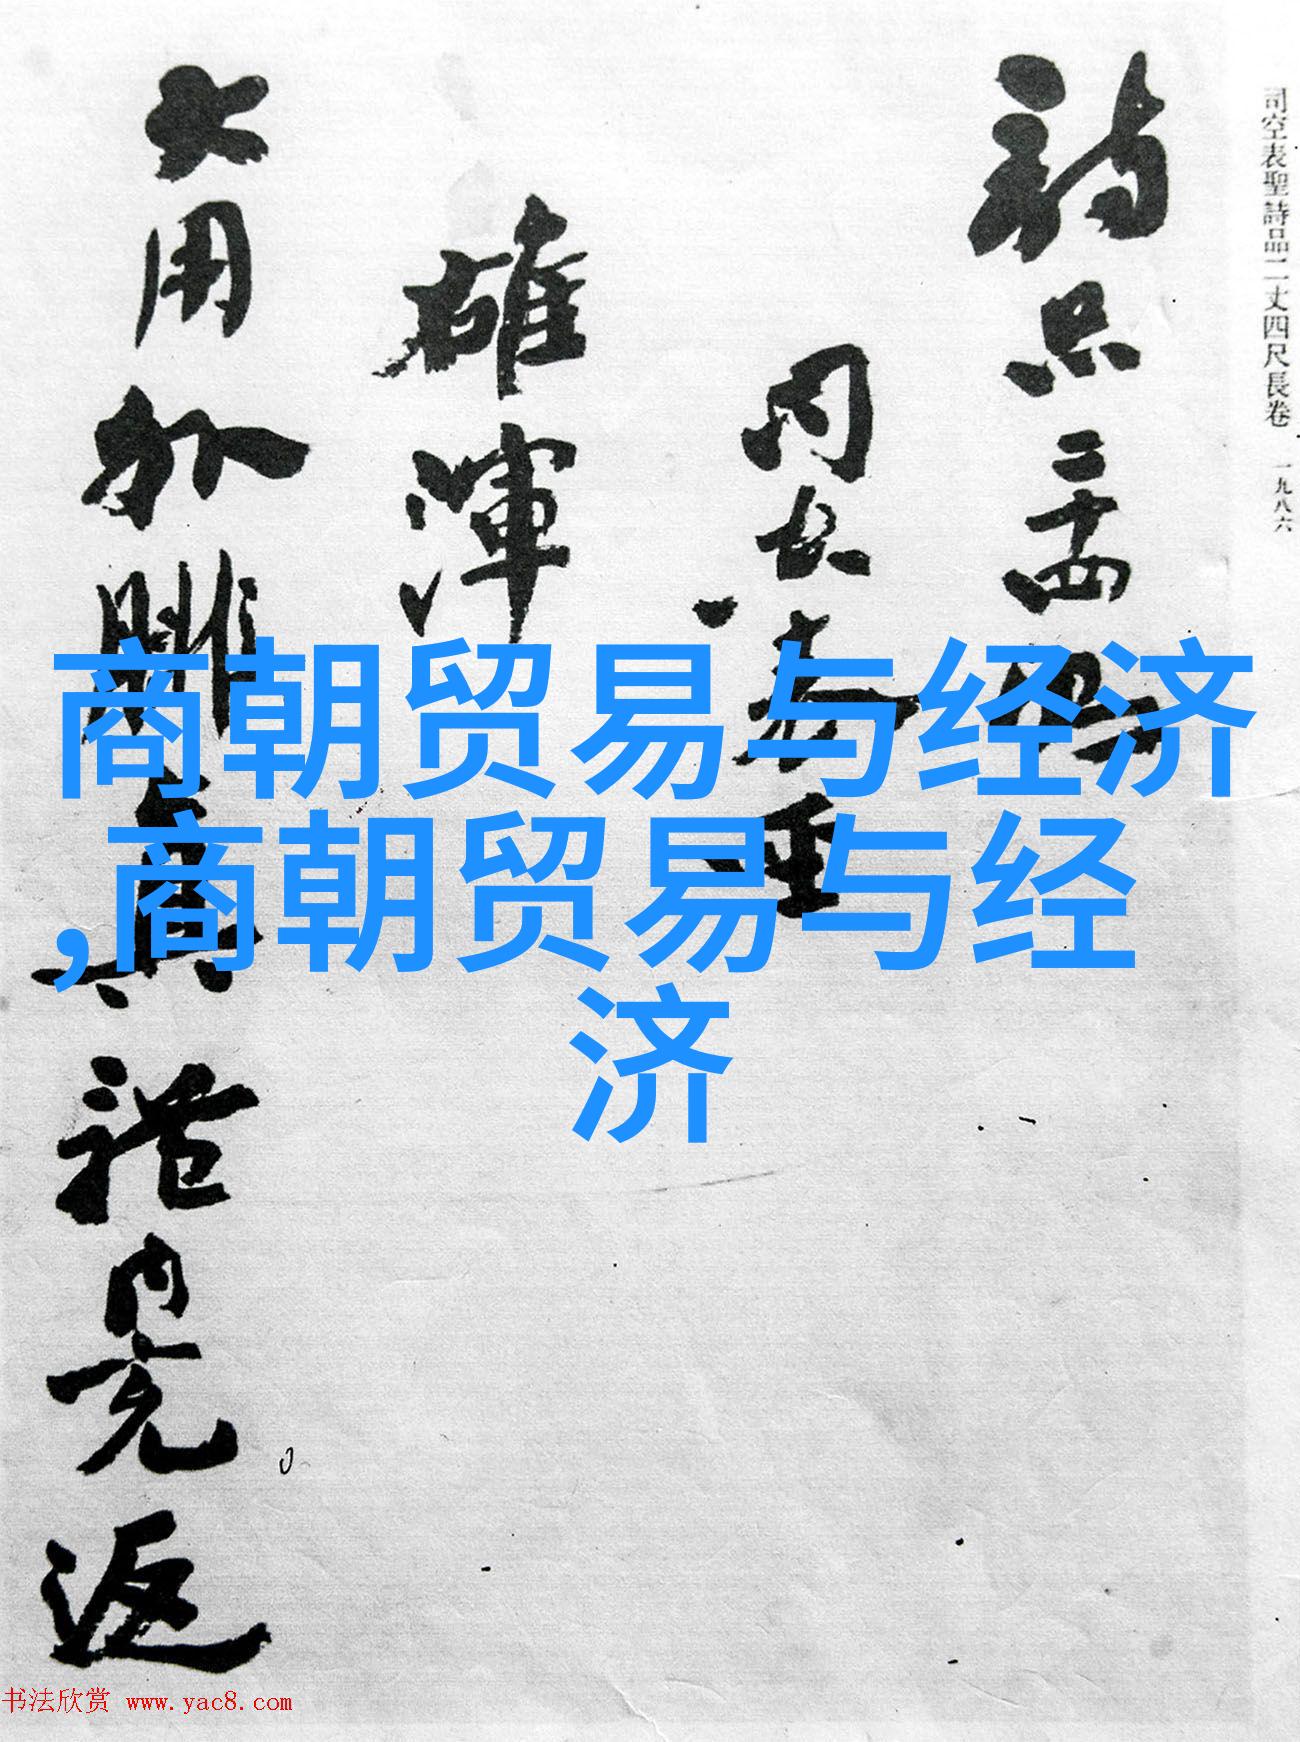 司空表聖詩品二丈四尺長卷 一九八六
詩品二十四則
雄渾
大用外腓真體內充返
商朝贸易与经济
,商朝贸易与经
济
书法欣赏 www.yac8.com